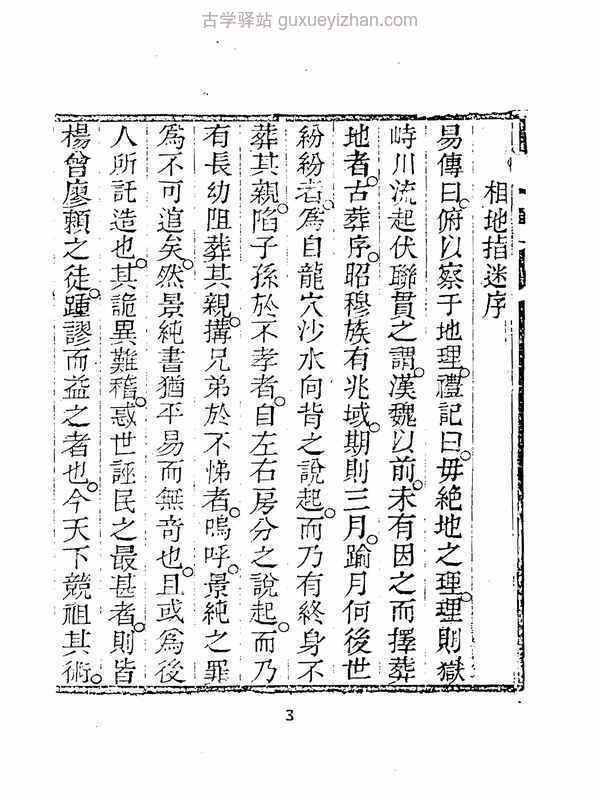 古学驿站 guxueyizhan.com
相地指迷序
易傳曰。俯以察于地理。禮記曰。毋絶地之理。理則獄
峙川流起伏聯貫之謂。漢魏以前。未有因之而擇葬
地者。古葬序。昭穆族有兆域。期則三月。踰月何後世
紛紛者。為自龍穴沙水向背之說起。而乃有終身不
葬其親。陷子孫於不孝者。自左右房分之說起。而乃
有長幼阻葬其親。搆兄弟於不悌者。嗚呼。景純之罪
為不可逭矣。然景純書猶平易而無奇也。且或為後
人所託造也。其詭異難稽。惑世誣民之最甚者。則皆
楊曾廖賴之徒。踵謬而益之者也。今天下競祖其術。
3